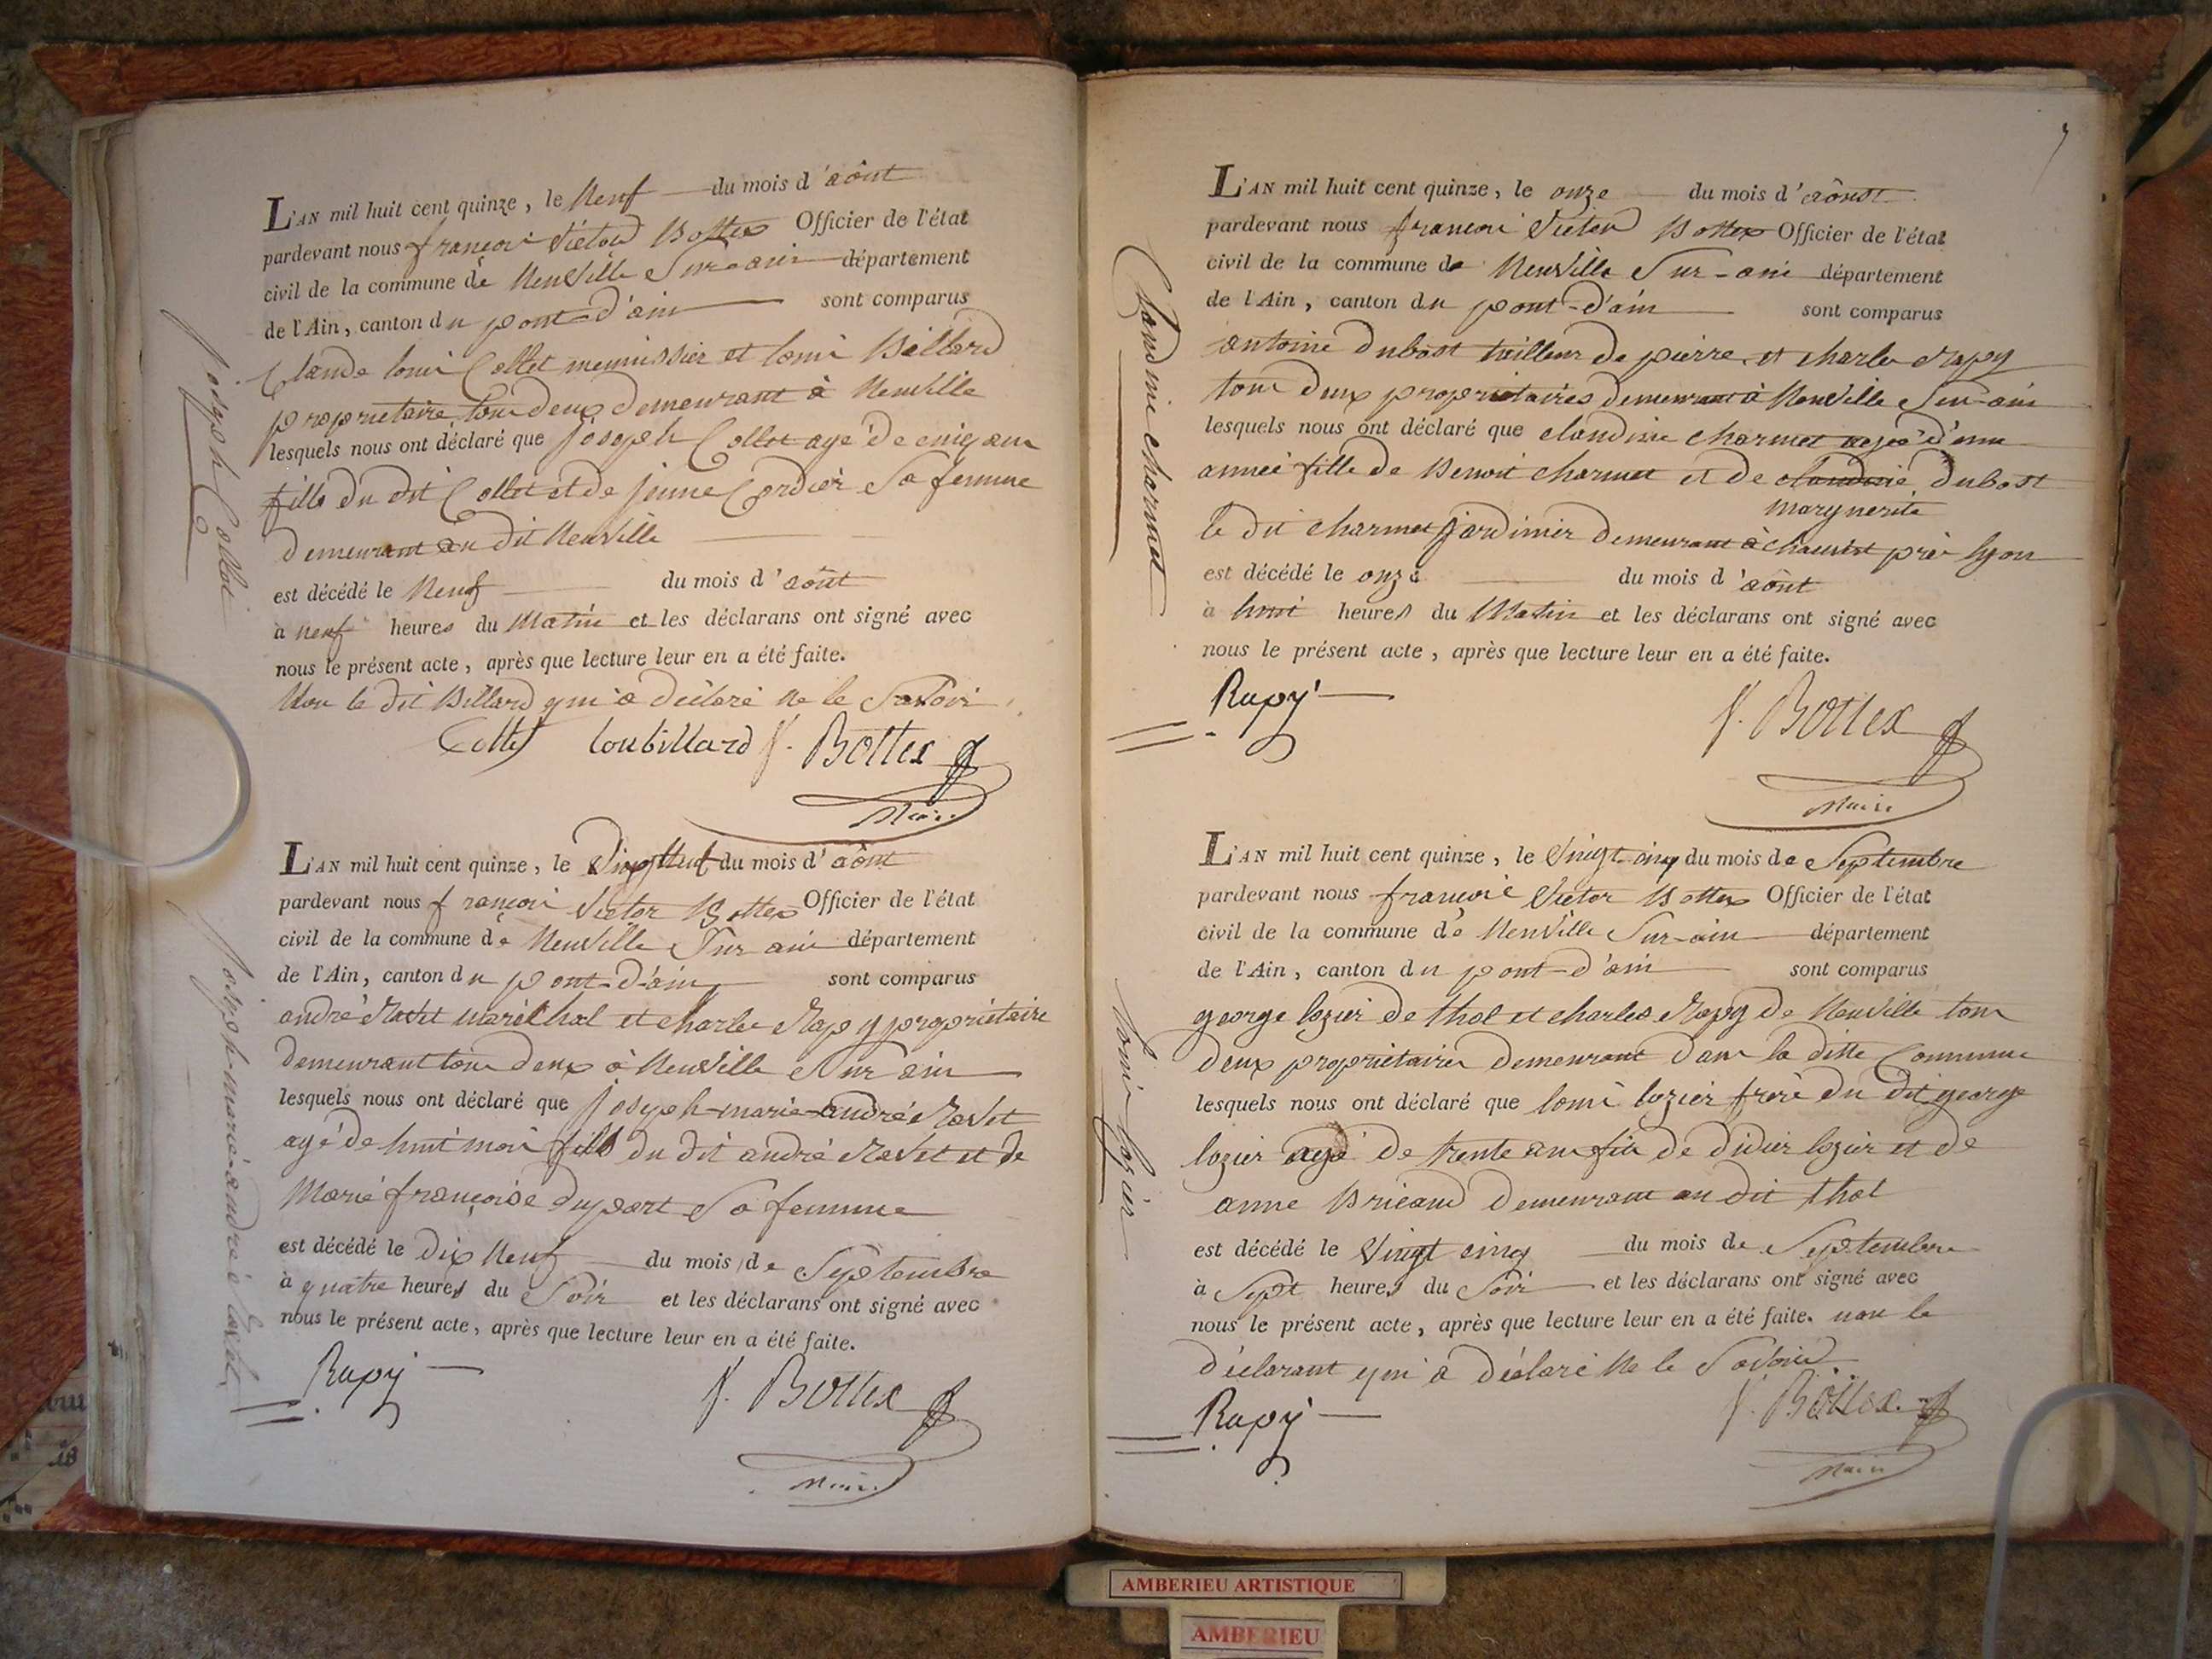 L'AN mil huit cent quinze, le Neuf du mois d'août
pardevant nous françois Victor Bottex Officier de l'état
civil de la commune de Neuville Sur-ain département
de l'Ain, canton du pont-d'ain sont comparus
Claude louis Collet menuissier et louis Billard
propriétaire tous deux demeurant à Neuville
lesquels nous ont déclaré que joseph Collet agé de cinq ans
fils du dit Collet et de jeune Cordier Sa femme
demeurant au dit Neuville
est décédé le Neuf du mois d'août
à neuf heures du Matin et les déclarans ont signé avec
nous le présent acte, après que lecture leur en a été faite.
Non le dit Billard qui a déclaré Ne le Savoir
Collet loubillard V. Bottex
Maire
joseph Collet
L'AN mil huit cent quinze, le du mois d'août
pardevant nous françois Victor Bottex Officier de l'état
civil de la commune de Neuville Sur ain département
de l'Ain, canton du pont-d'ain sont comparus
andré Ravet maréchal et charles Rapy propriétaire
demeurant tous deux à Neuville Sur ain
lesquels nous ont déclaré que joseph-marie-andré Ravet
agé de huit mois fils du dit andré Ravet et de
Marie françoise dupart Sa femme
est décédé le Dix Neuf du mois de Septembre
à quatre heures du Soir et les déclarans ont signé avec
nous le présent acte, après que lecture leur en a été faite.
Rapy V. Bottex
Maire
joseph-marie-andré Ravet
7
L'AN mil huit cent quinze, le onze du mois d'août
pardevant nous françois Victor Bottex Officier de l'état
civil de la commune de Neuville Sur-ain département
de l'Ain, canton du pont-d'ain sont comparus
antoine Dubost tailleur de pierre et charles Rapy
tous deux propriétaires demeurant à Neuville Sur-ain
lesquels nous ont déclaré que claudine charmet agée d'une
année fille de Benoit charmet et de claudine Dubost
marguerite
le dit charmet jardinier demeurant à près lyon
est décédé le onze du mois d'août
à huit heures du Matin et les déclarans ont signé avec
nous le présent acte, après que lecture leur en a été faite.
Rapy V. Bottex
Maire
Claudine charmet
L'AN mil huit cent quinze, le Vingt-cinq du mois de Septembre
pardevant nous françois Victor Bottex Officier de l'état
civil de la commune de Neuville Sur-ain département
de l'Ain, canton du pont-d'ain sont comparus
george lozier de thol et charles Rapy de Neuville tous
deux propriétaires demeurant dans la ditte Commune
lesquels nous ont déclaré que louis lozier frère du dit george
lozier agé de trente ans fils de didier lozier et de
anne Bricaud demeurant au dit thol
est décédé le Vingt cinq du mois de Septembre
à Sept heures du Soir et les déclarans ont signé avec
nous le présent acte, après que lecture leur en a été faite. non le
déclarant qui a déclaré Ne le Savoir.
Rapy V. Bottex
Maire
louis lozier
AMBERIEU ARTISTIQUE
AMBERIEU